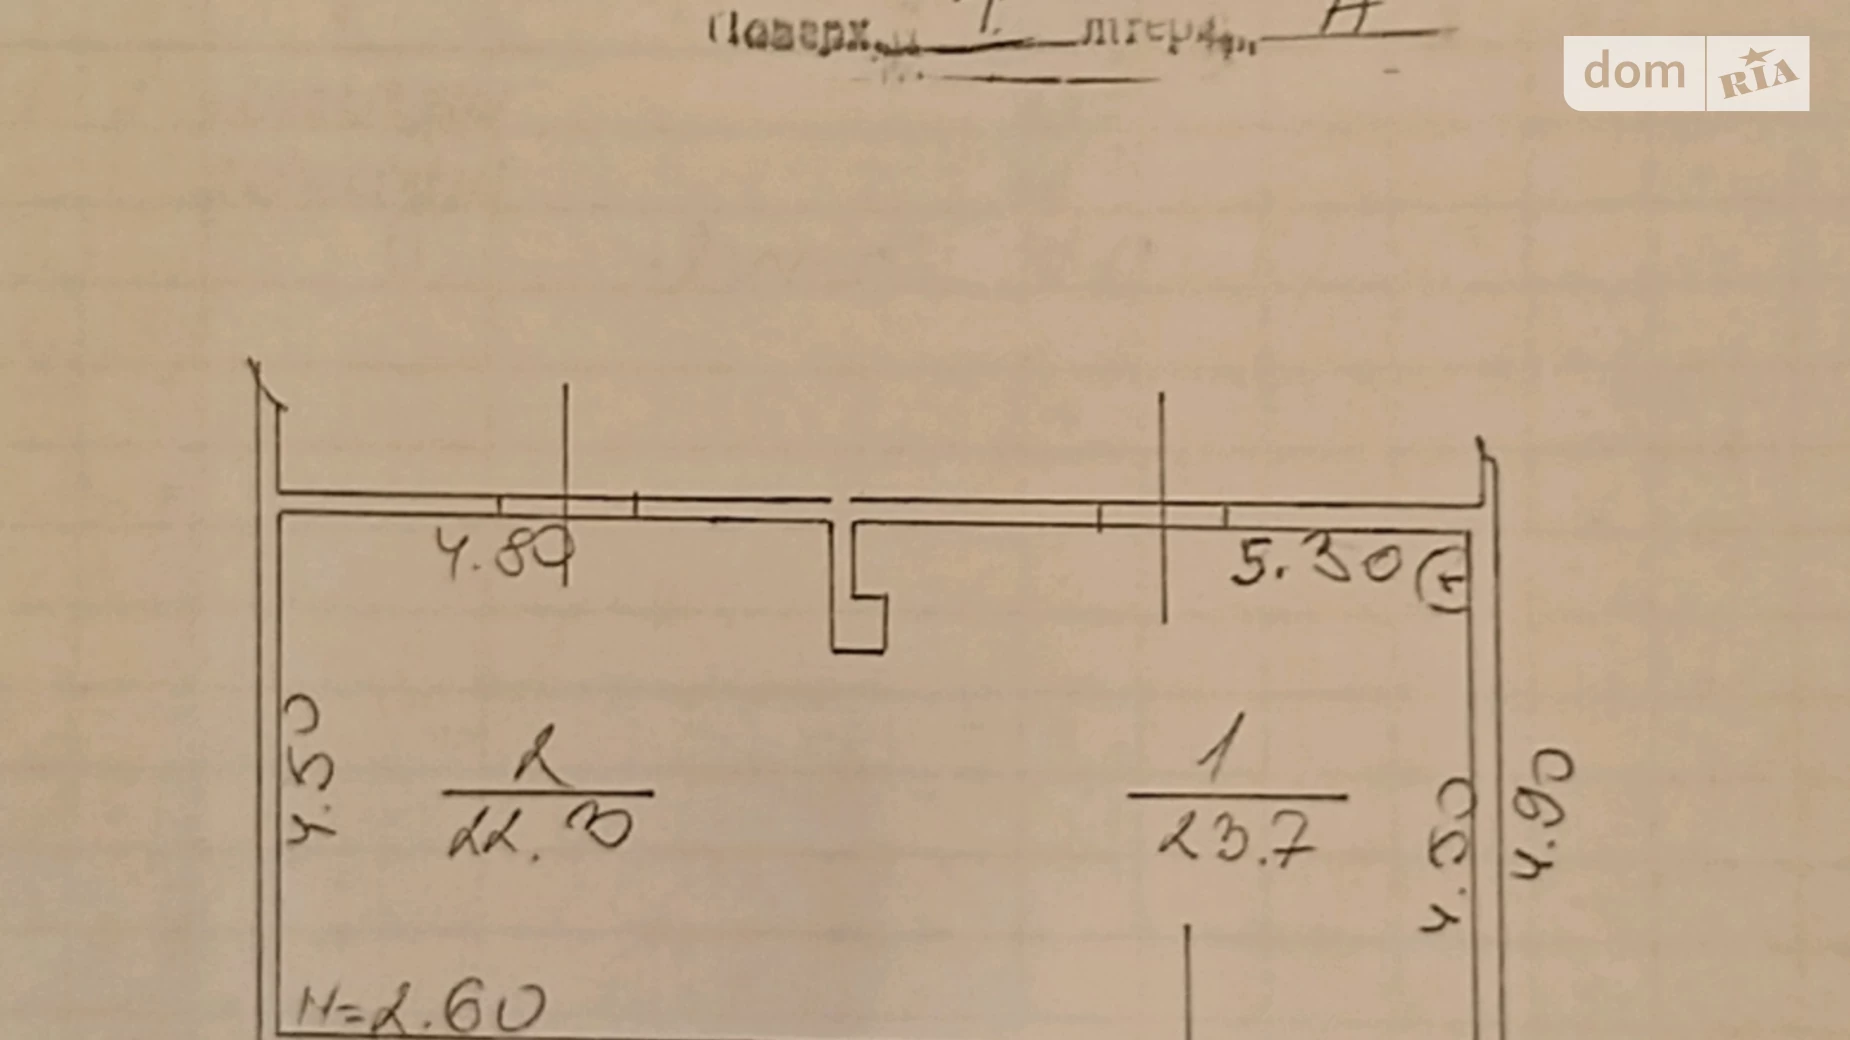 Поверх 1. літера А
dom RIA
4.80
5.30 1
4.50
2
22.3
1
23.7
4.50
4.90
H=2.60